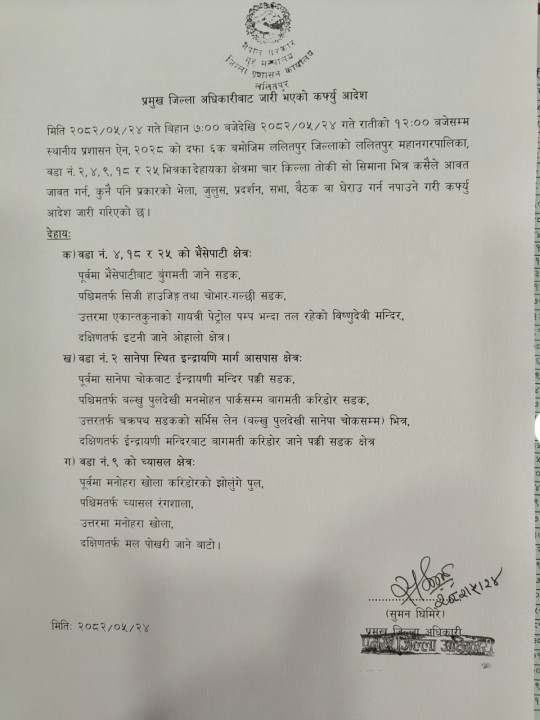 नेपाल सरकार
गृह मन्त्रालय
जिल्ला प्रशासन कार्यालय
ललितपुर
प्रमुख जिल्ला अधिकारीबाट जारी भएको कर्फ्यु आदेश
मिति २०८२/०५/२४ गते बिहान ७:०० बजेदेखि २०८२/०५/२४ गते रातीको १२:०० बजेसम्म
स्थानीय प्रशासन ऐन, २०२८ को दफा ६क बमोजिम ललितपुर जिल्लाको ललितपुर महानगरपालिका,
वडा नं. २, ४, ९, १८ र २५ भित्रका देहायका क्षेत्रमा चार किल्ला तोकी सो सिमाना भित्र कसैले आवत
जावत गर्न, कुनै पनि प्रकारको भेला, जुलुस, प्रदर्शन, सभा, बैठक वा घेराउ गर्न नपाउने गरी कर्फ्यु
आदेश जारी गरिएको छ।
देहायः
क) वडा नं. ४, १८ र २५ को भैंसेपाटी क्षेत्रः
पूर्वमा भैंसेपाटीबाट बुंगमती जाने सडक,
पश्चिमतर्फ सिजी हाउजिङ्ग तथा चोभार-गल्छी सडक,
उत्तरमा एकान्तकुनाको गायत्री पेट्रोल पम्प भन्दा तल रहेको विष्णुदेवी मन्दिर,
दक्षिणतर्फ इटनी जाने ओह्रालो क्षेत्र।
ख) वडा नं. २ सानेपा स्थित इन्द्रायणि मार्ग आसपास क्षेत्रः
पूर्वमा सानेपा चोकबाट ईन्द्रायणी मन्दिर पक्की सडक,
पश्चिमतर्फ वल्खु पुलदेखी मनमोहन पार्कसम्म बागमती करिडोर सडक,
उत्तरतर्फ चक्रपथ सडकको सर्भिस लेन (वल्खु पुलदेखी सानेपा चोकसम्म) भित्र,
दक्षिणतर्फ ईन्द्रायणी मन्दिरबाट बागमती करिडोर जाने पक्की सडक क्षेत्र
ग) वडा नं. ९ को च्यासल क्षेत्रः
पूर्वमा मनोहरा खोला करिडोरको झोलुंगे पुल,
पश्चिमतर्फ च्यासल रंगशाला,
उत्तरमा मनोहरा खोला,
दक्षिणतर्फ मल पोखरी जाने बाटो।
२०८२/५/२४
(सुमन घिमिरे)
प्रमुख जिल्ला अधिकारी
प्रमुख जिल्ला अधिकारी
मितिः २०८२/०५/२४